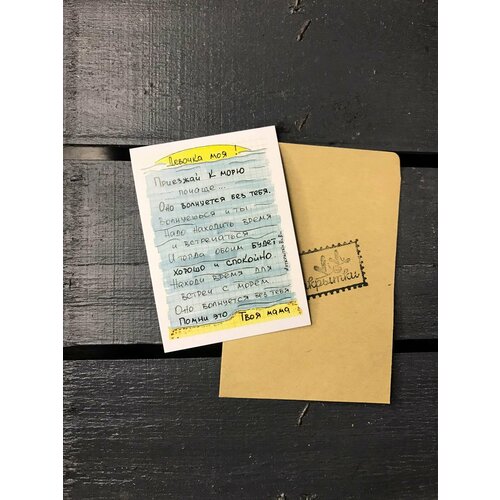 Девочка моя !
Приезжай к морю
почаще...
Оно волнуется без тебя.
Волнуешься и ты.
Надо находить время
и встречаться
И тогда обоим будет
хорошо и спокойно.
Находи время для
встреч с морем
Оно волнуется без тебя.
Помни это Твоя мама